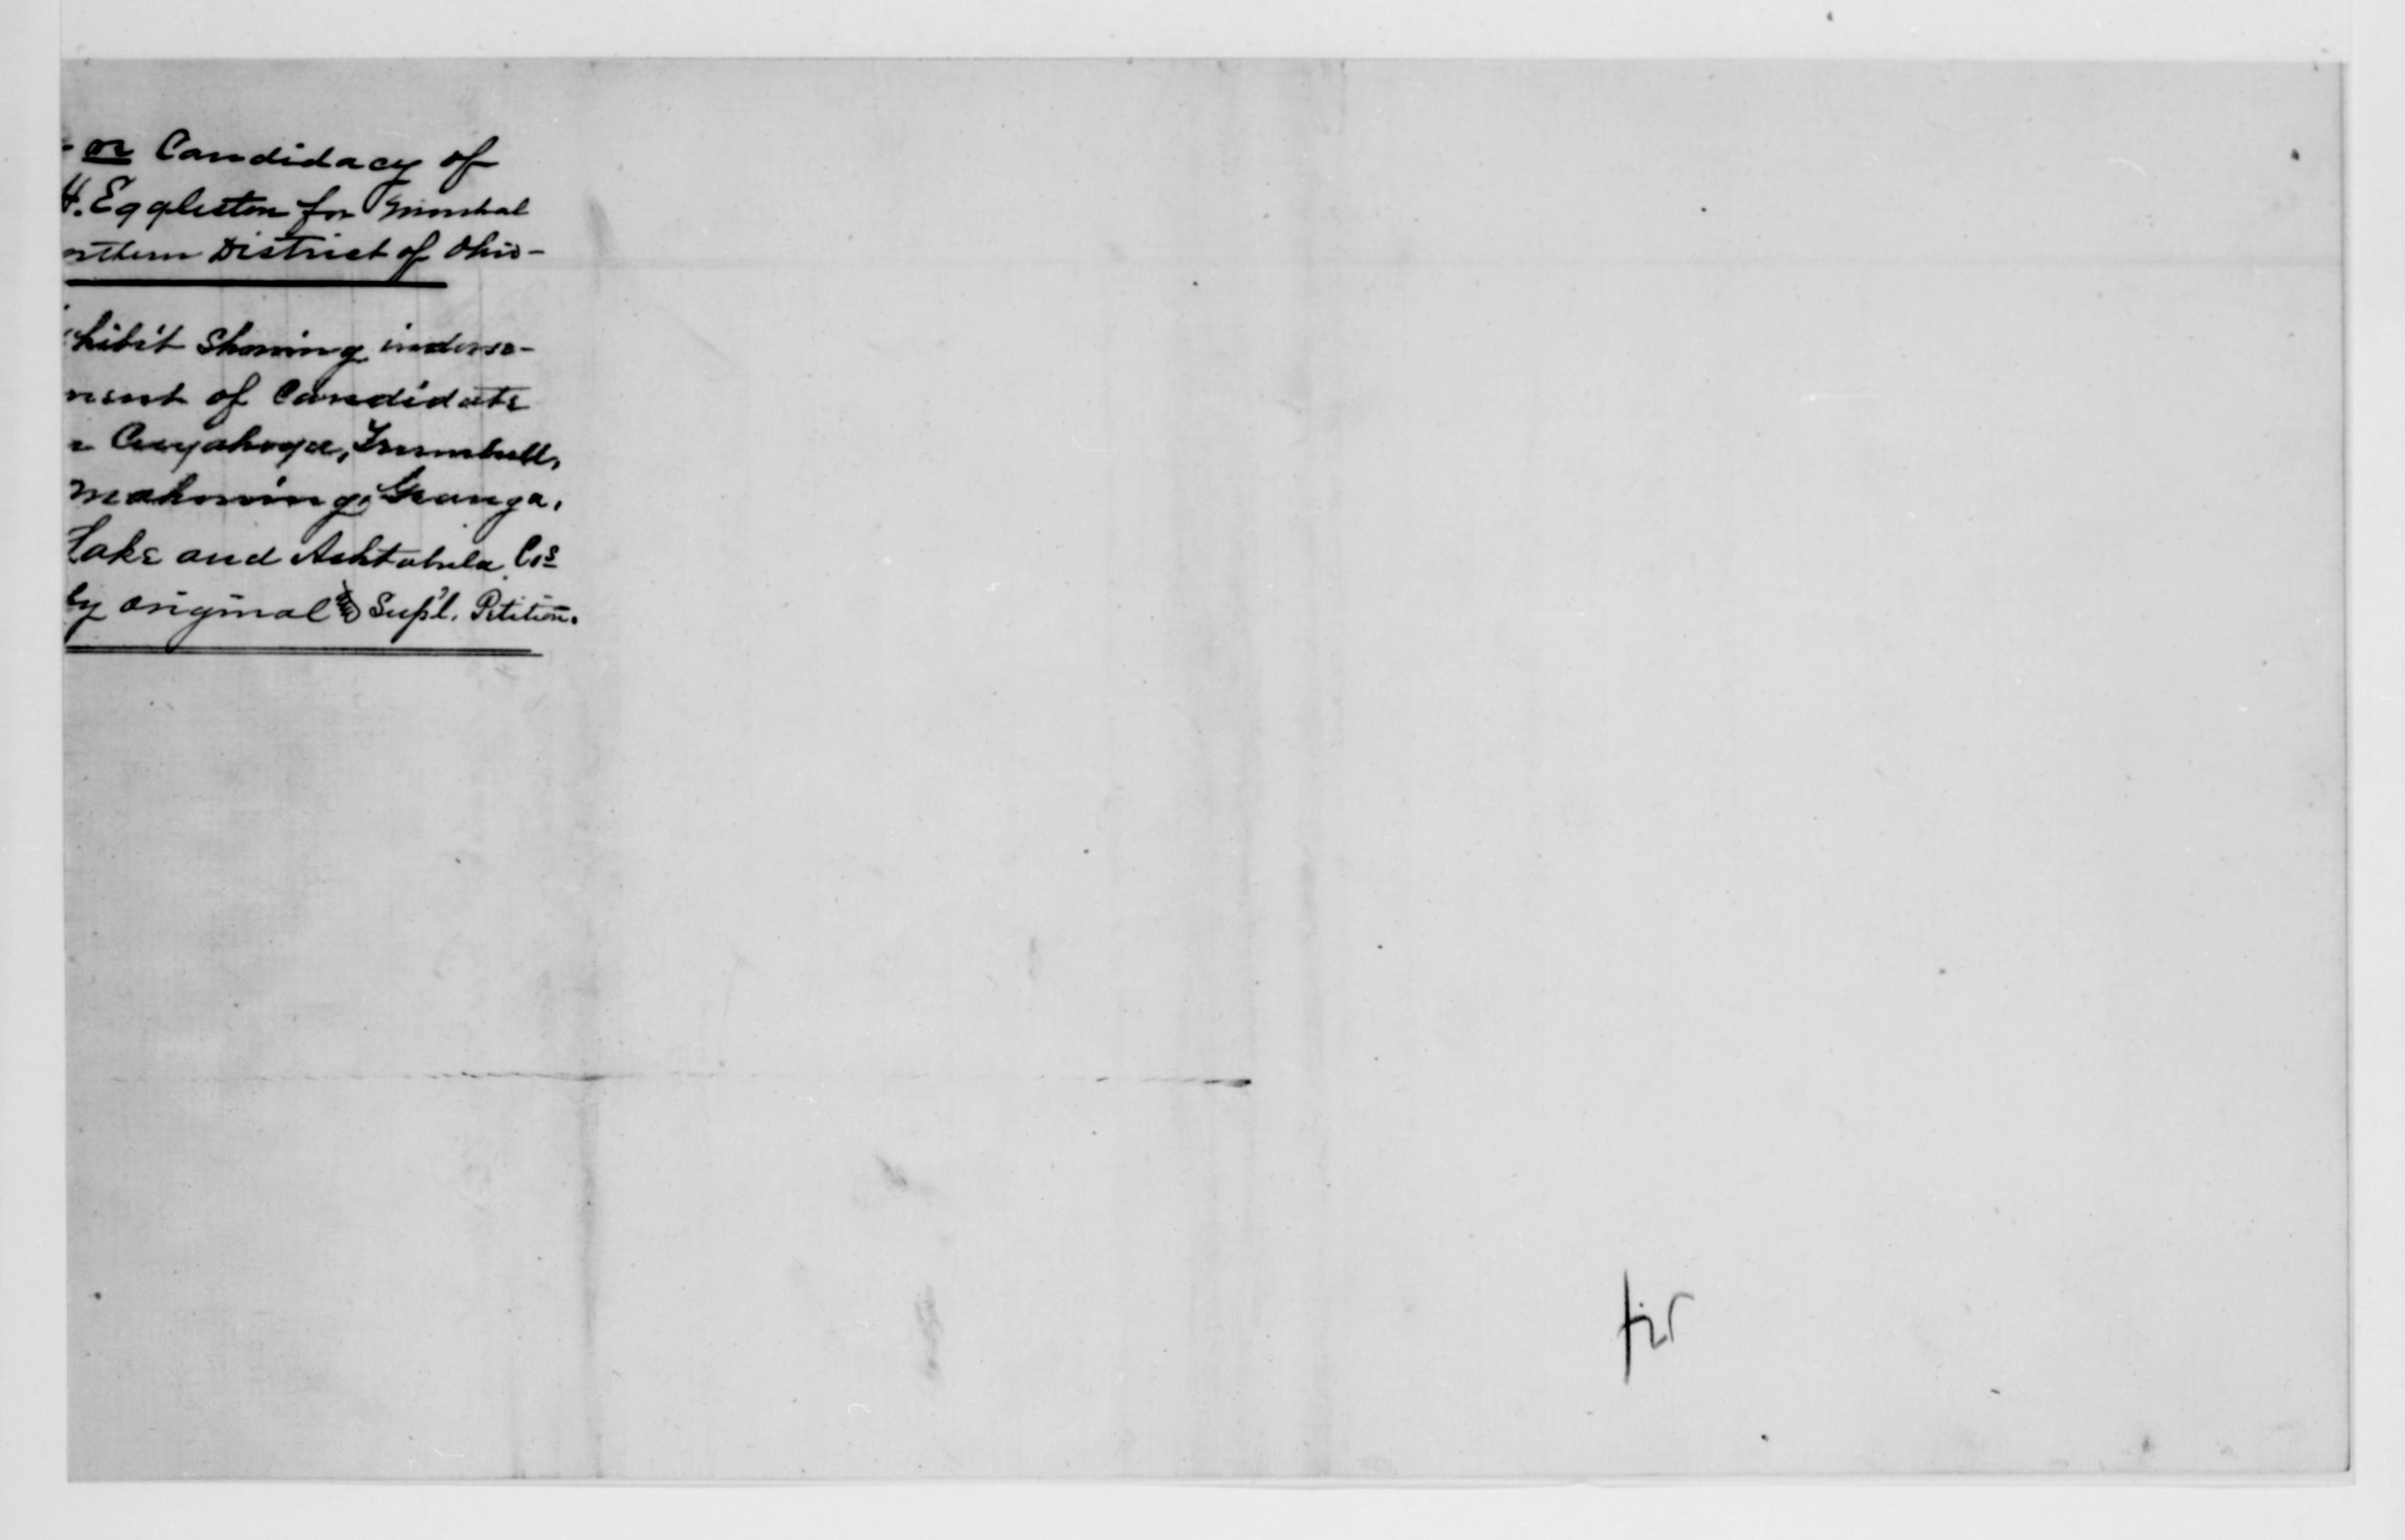 or Candidacy of
H. Eggleston for Marshal
orthern District of Ohio-
hibit Showing indorse-
ment of Candidate
Cuyahoga, Trumbull,
Mahoning, Geauga,
Lake and Ashtabula Cos
by original Sup'l. Petition.